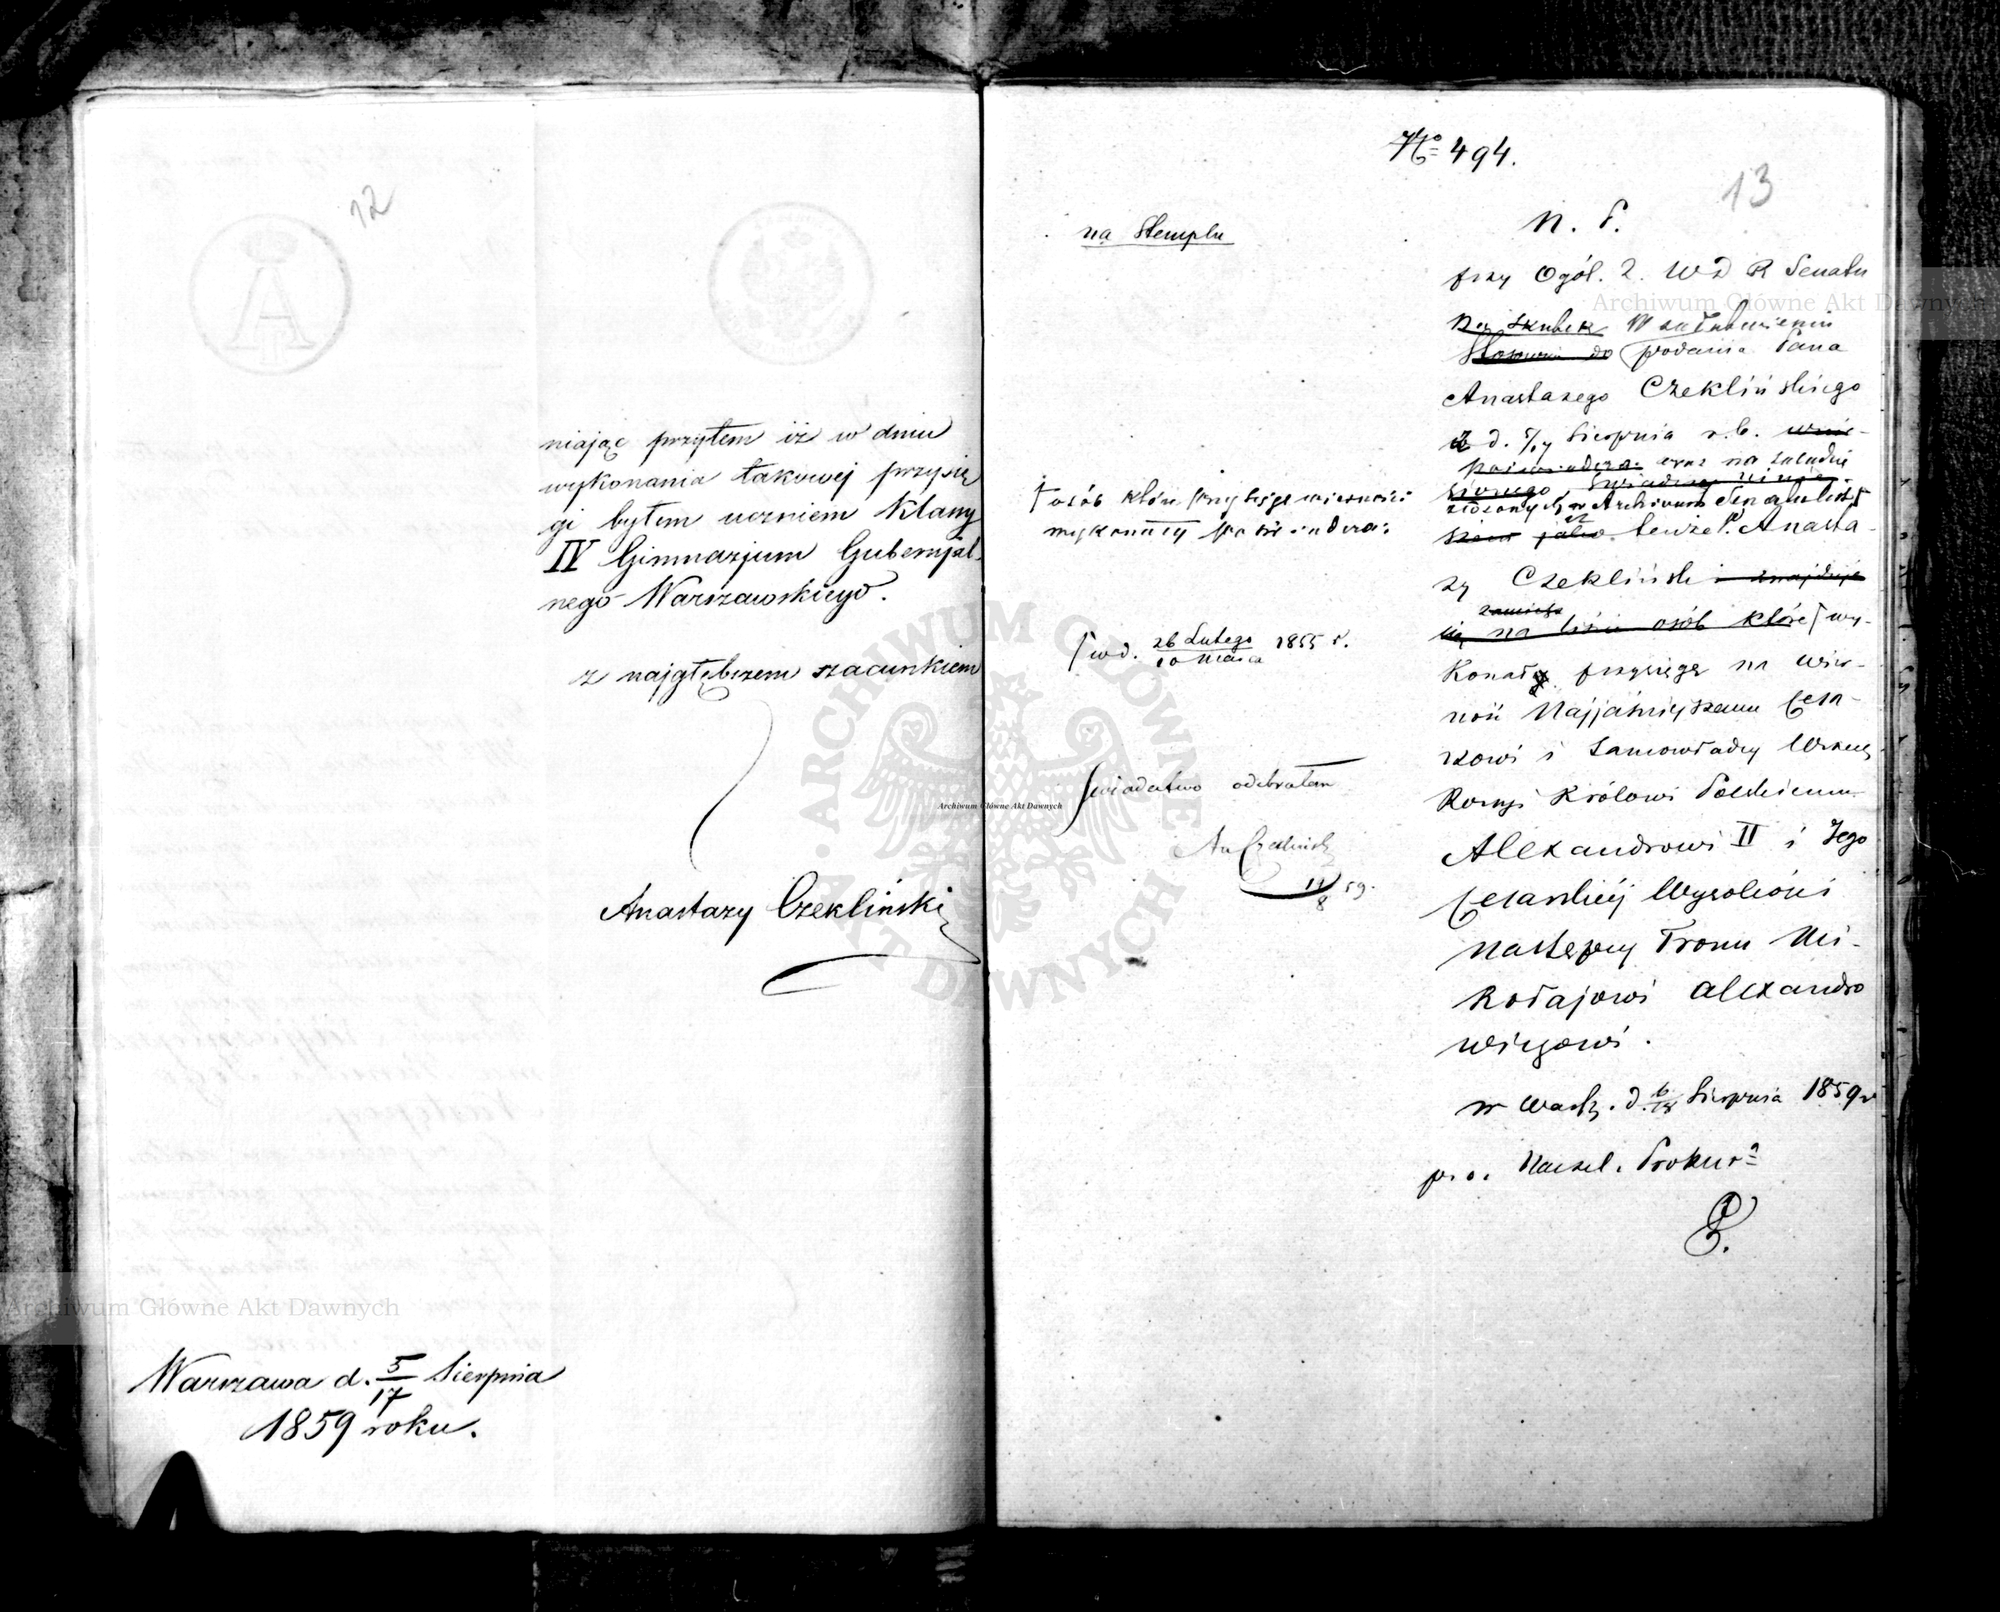 12
niając przytem iż w dniu
wykonania takowej przysię
gi byłem uczniem Klassy
IV Gimnazjum Gubernjal-
nego Warszawskiego.
z najgłębszem szacunkiem
Anastazy Czekliński
Warszawa d. 5/17 Sierpnia
1859 roku.
No 494.
13
na Stemplu
N. P.
przy Ogól. Z. W D R Senatu
W załatwieniu
Stosownie do podania Pana
Anastazego Czeklińskiego
z d. 5/17 Sierpnia r.b.
poświadcza oraz na zasadzie
złożonych w Archiwum Senatu list
tenże P. Anasta-
zy Czekliński i znajduje
się na liście osób które wy-
konały przysięgę na wier-
ność Najjaśniejszemu Cesa-
rzowi i Samowładcy Wszech
Rossyi Królowi Polskiemu
Alexandrowi II i Jego
Cesarskiéj Wysokości
Następcy Tronu Mi-
kołajowi Alexandro
wiczowi.
w Warsz. d. 6/18 Sierpnia 1859 r
p. o. Naczel. Prokura
osób które przysięgę wierności
wykonały poświadcza:
w d. 26 Lutego/10 Marca 1855 r.
Świadectwo odebrałem
An Czekliński
19/8 59.
Archiwum Główne Akt Dawnych
Archiwum Główne Akt Dawnych
Archiwum Główne Akt Dawnych
ARCHIWUM GŁÓWNE AKT DAWNYCH